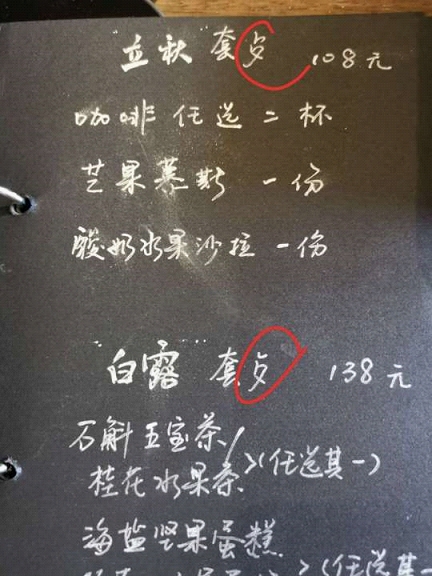 “立秋”套歺 108元
咖啡任选二杯
芒果慕斯 一份
酸奶水果沙拉 一份
“白露”套歺 138元
石斛五宝茶/
桂花水果茶 >(任选其一)
海盐坚果蛋糕
>(任选其一